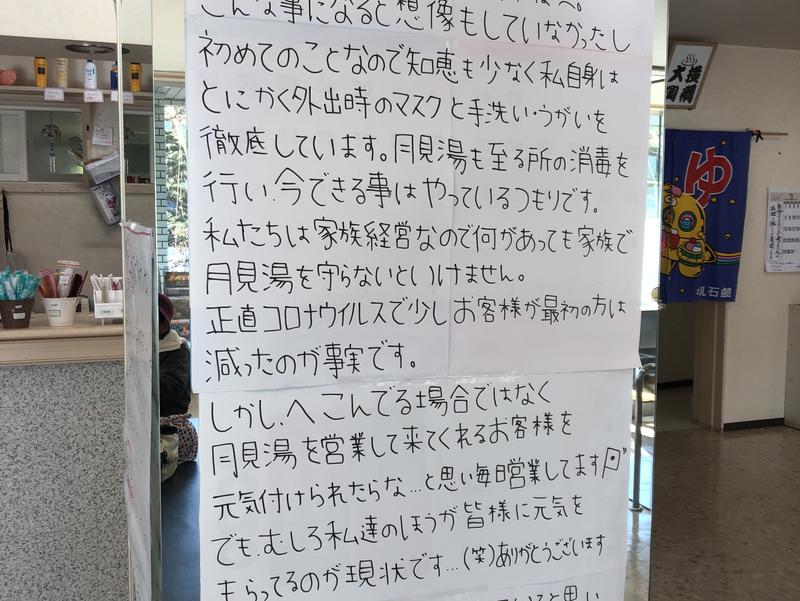 こんな事になると想像もしていなかったし
初めてのことなので知恵も少なく私自身は
とにかく外出時のマスクと手洗い・うがいを
徹底しています。月見湯も至る所の消毒を
行い、今できる事はやっているつもりです。
私たちは家族経営なので何があっても家族で
月見湯を守らないといけません。
正直コロナウイルスで少しお客様が最初の方は
減ったのが事実です。
しかし、へこんでる場合ではなく
月見湯を営業して来てくれるお客様を
元気付けられたらな…と思い毎日営業してます
でも、むしろ私達のほうが皆様に元気を
もらってるのが現状です…(笑)ありがとうございます
と思い
ゆ
石鹸